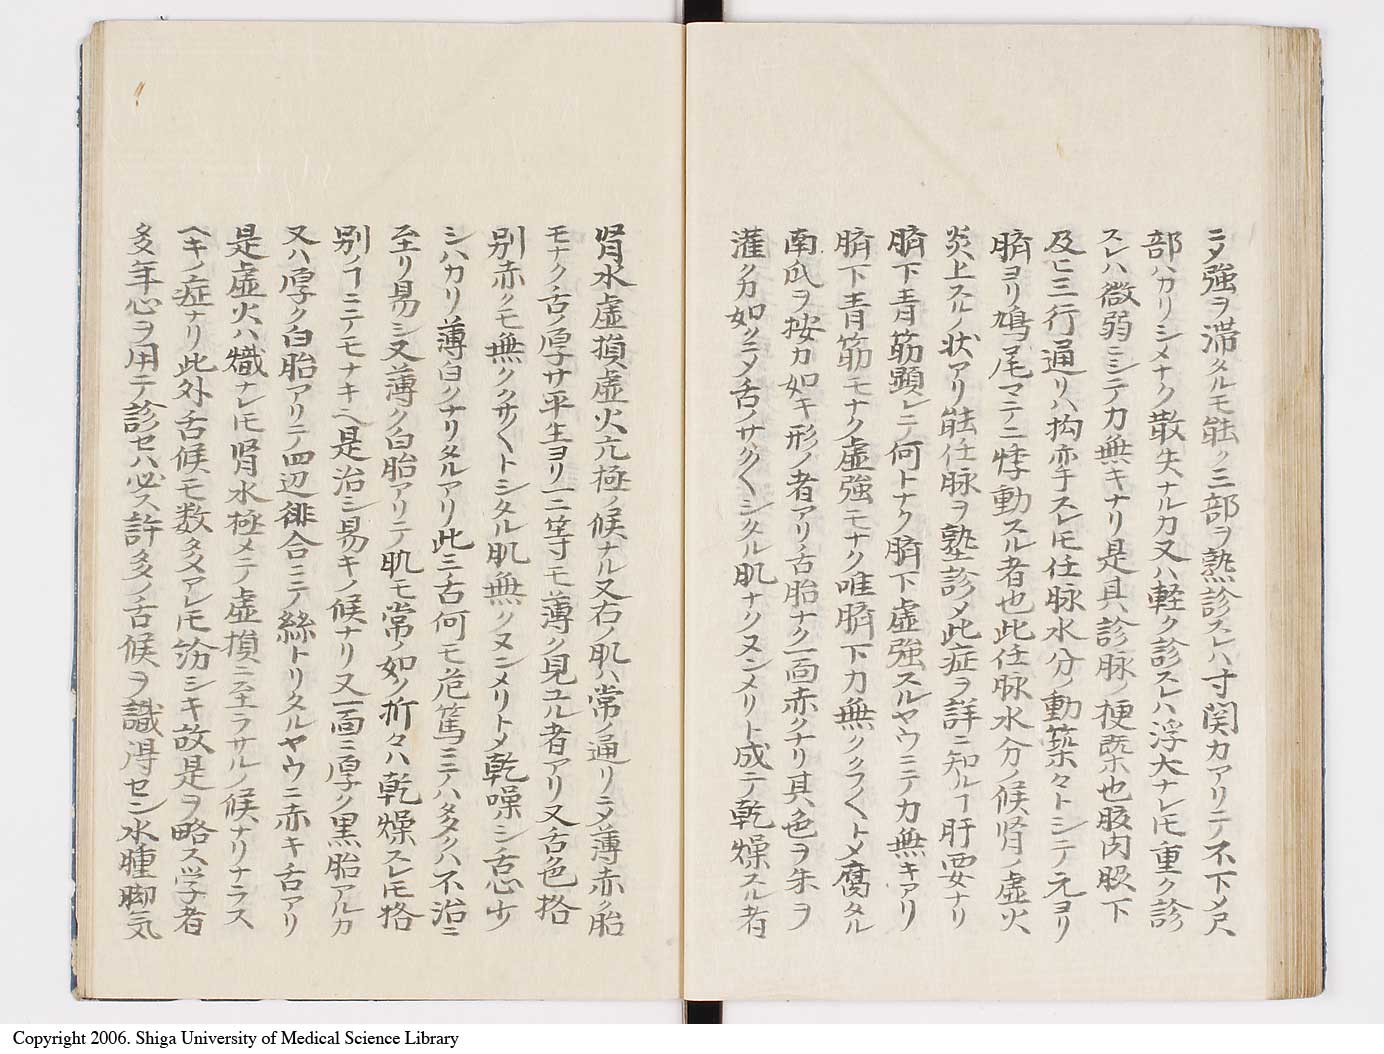 ニメ強ヲ滞タルモ能ク三部ヲ熟診スレハ寸関力アリテ不下メ尺
部ハカリシメナク散失ナルカ又ハ軽ク診スレハ浮大ナレㇳモ重ク診
スレハ微弱ニシテ力無キナリ是其診脉ノ梗槩也腹内股下
及ヒ三行通リハ拘亦スレㇳモ任脉水分ノ動築々トシテ元ヨリ
臍ヨリ鳩尾マテニ悸動スル者也此任脉水分ノ候肾ノ虚火
炎上スルノ状アリ能任脉ヲ塾診メ此症ヲ詳ニ知ルヿ肝要ナリ
臍下青筋顕レテ何トナク臍下虚強スルヤウニテ力無キアリ
臍下青筋モナク虚強モナク唯臍下力無ククラ〱トメ腐タル
南瓜ヲ按カ如キ形ノ者アリ舌胎ナク一面赤クナリ其色ヲ朱ヲ
灌クカ如クニメ舌ノサク〱シタル肌ナクヌンメリト成テ乾燥スル者
肾水虚損虚火亢極ノ候ナル又右ノ肌ハ常ノ通リニメ薄赤ク胎
モナク舌ノ厚サ平生ヨリ一二等寸モ薄ク見ユル者アリ又舌色格
別赤クモ無ククサ〱トシタル肌無クヌンメリトメ乾噪シ舌心少
シハカリ薄白クナリタルアリ此三舌何モ危篤ニテハ多クハ不治ニ
至リ易シ又薄ク白胎アリテ肌モ常ノ如ク折々ハ乾燥スレㇳモ格
別ノヿニテモナキハ是治シ易キノ候ナリ又一面ニ厚ク黒胎アルカ
又ハ厚ク白胎アリテ四辺
合ニテ絲トリタルヤウニ赤キ舌アリ
是虚火ハ熾ナレㇳモ肾水極メテ虚損ニ至ラサルノ候ナリナラス
ヘキノ症ナリ此外舌候モ数多アレㇳモ紛シキ故是ヲ略ス学者
多年心ヲ用テ診セハ必ス許多ノ舌候ヲ識得セン水腫脚気
Copyright 2006. Shiga University of Medical Science Library